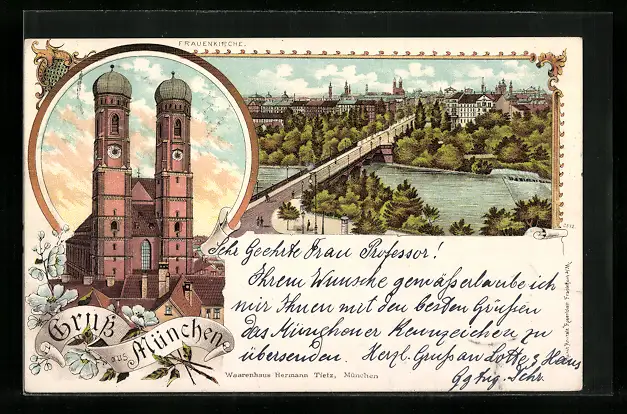 FRAUENKIRCHE.
Gruß
aus
München
Sehr Geehrte Frau Professor!
Ihrem Wunsche gemäß erlaube ich
mir Ihnen mit den besten Grüßen
das Münchener Kennzeichen zu
übersenden. Herzl. Gruß an Lotte & Hans
Schr.
Waarenhaus Hermann Tietz, München